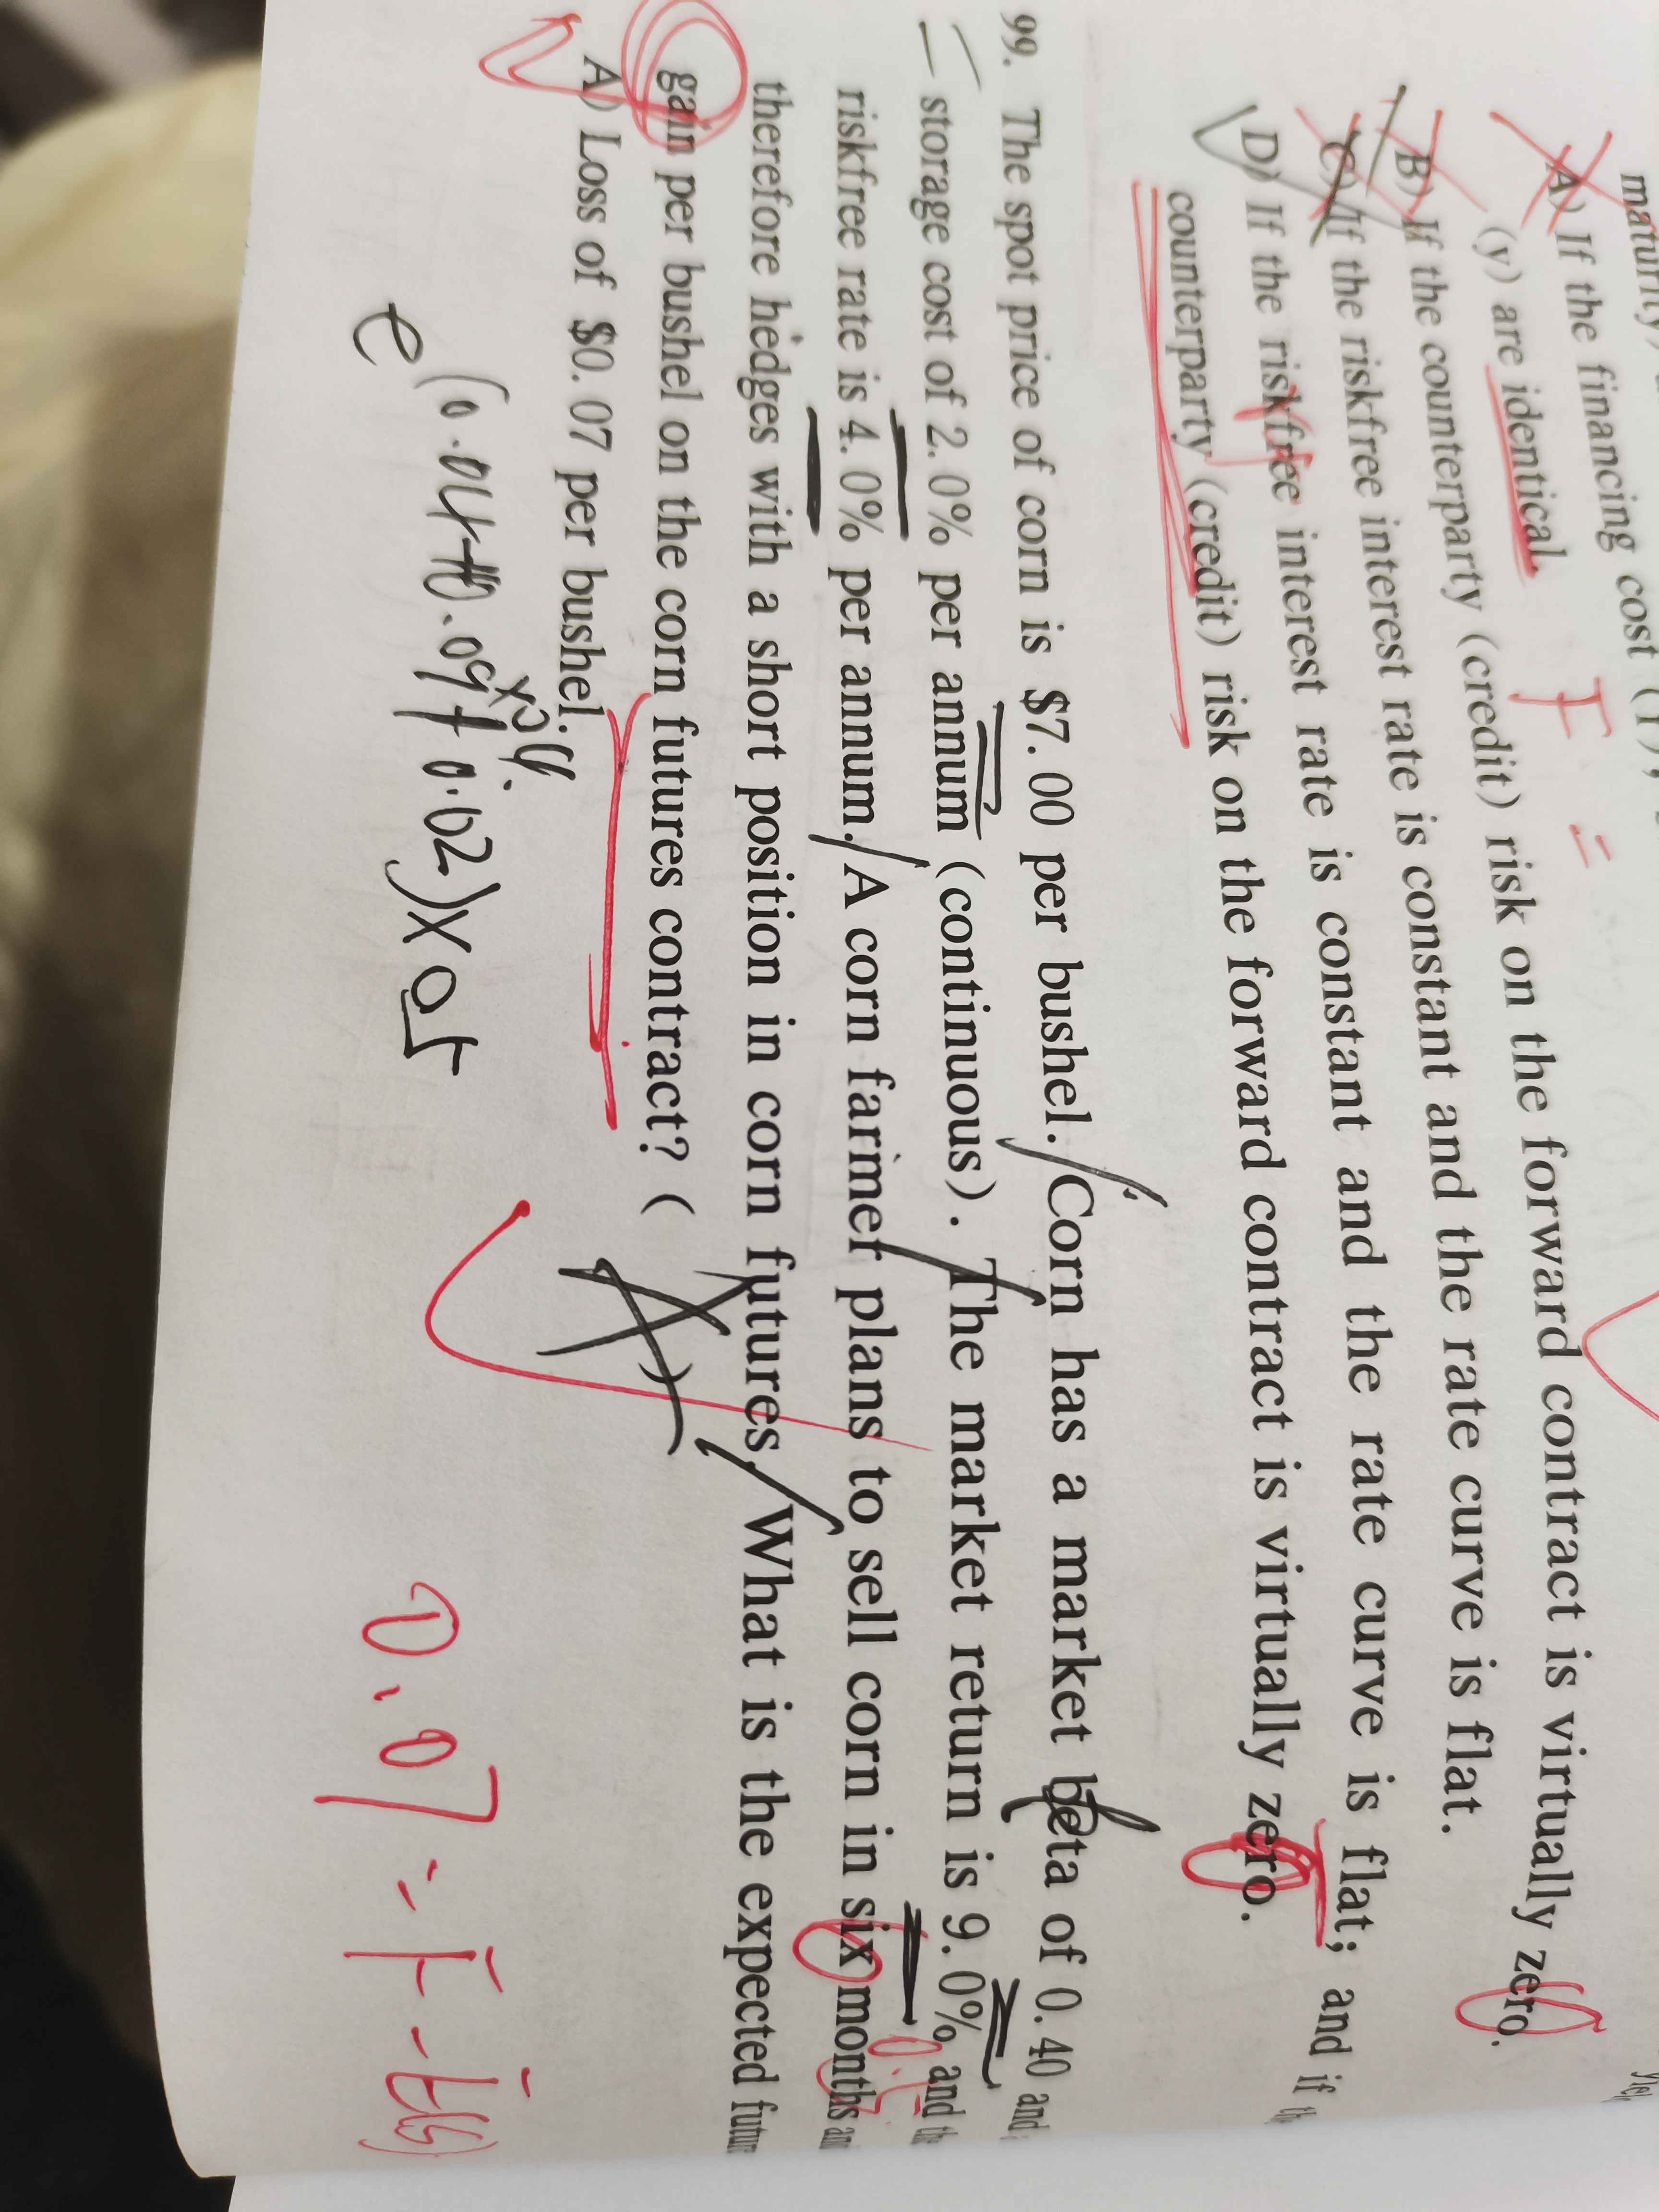 maturity
cost
A) If the financing
(y) are identical. F =
B) If the counterparty (credit) risk on the forward contract is virtually zero.
C) If the riskfree interest rate is constant and the rate curve is flat.
D) If the riskfree interest rate is constant and the rate curve is flat; and if the
counterparty (credit) risk on the forward contract is virtually zero.
99. The spot price of corn is $7.00 per bushel. Corn has a market beta of 0.40 and
storage cost of 2.0% per annum (continuous). The market return is 9.0% and the
riskfree rate is 4.0% per annum. A corn farmer plans to sell corn in six months and
therefore hedges with a short position in corn futures. What is the expected future
gain per bushel on the corn futures contract? ( A )
A) Loss of $0.07 per bushel.
e(0.04+0.09 + 0.02)×0.5
0.07 = F -